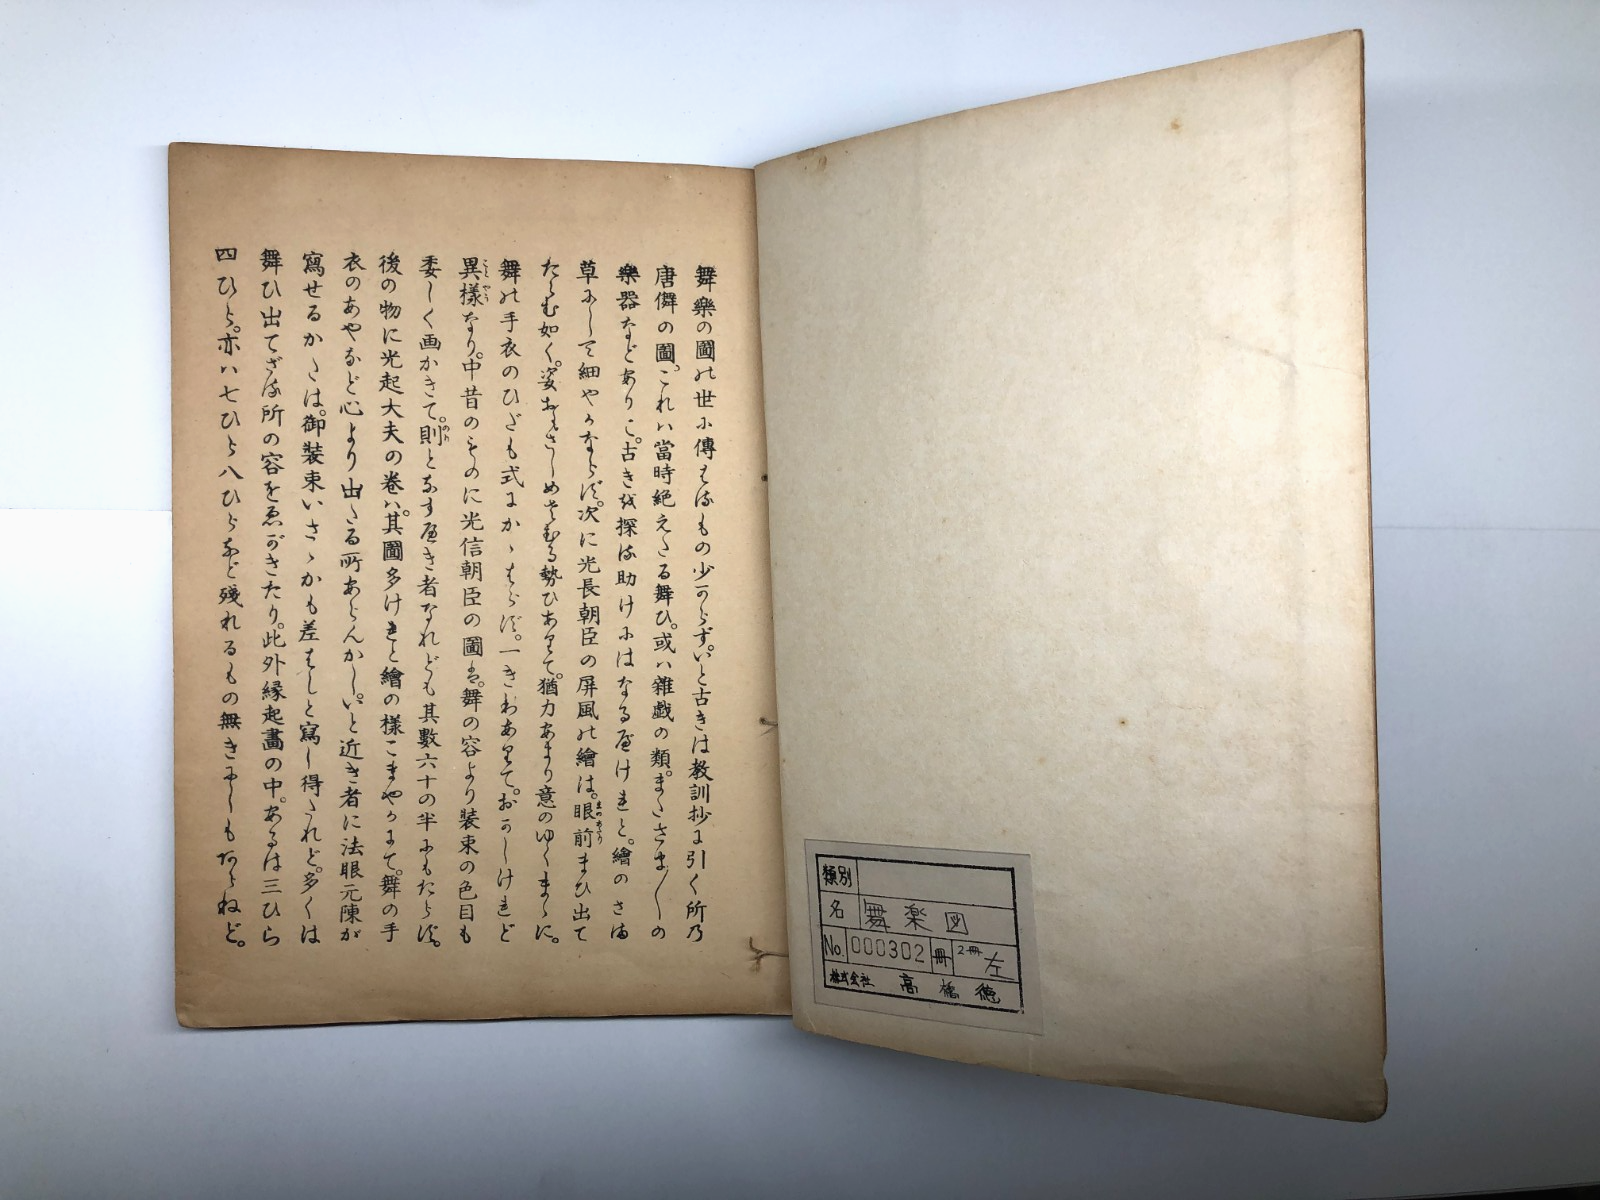 舞樂の圖の世に傳はるもの少からず。いと古きは教訓抄に引く所乃
唐儛の圖。これハ當時絶えたる舞ひ。或ハ雜戯の類。またさま〲の
樂器などありて。古きを探る助けにはなるべけれと。繪のさま
草にして細やかならず。次に光長朝臣の屏風の繪は。眼前まひ出て
たらむ如く。姿おもさしめさむる勢ひありて。猶力あまり意のゆくまゝに。
舞の手衣のひだも式にかゝはらず。一きわありて。おかしけれど
異様なり。中昔のものに光信朝臣の圖は。舞の容より装束の色目も
委しく画かきて。則となすべき者なれども其數六十の半にもたらず。
後の物に光起大夫の卷ハ。其圖多けれと繪の様こまやかにて。舞の手
衣のあやなど心より出たる所あらんかし。いと近き者に法眼元陳が
寫せるかたは。御装束いさゝかも差はしと寫し得たれど。多くは
舞ひ出てざる所の容をゑがきたり。此外縁起畵の中。あるは三ひら
四ひら。亦ハ七ひら八ひらなど殘れるもの無きにしもあらねど。
こと やう
のり
まのあたり
類別
名 舞楽図
No. 000302 冊 2冊 左
株式会社 高橋徳